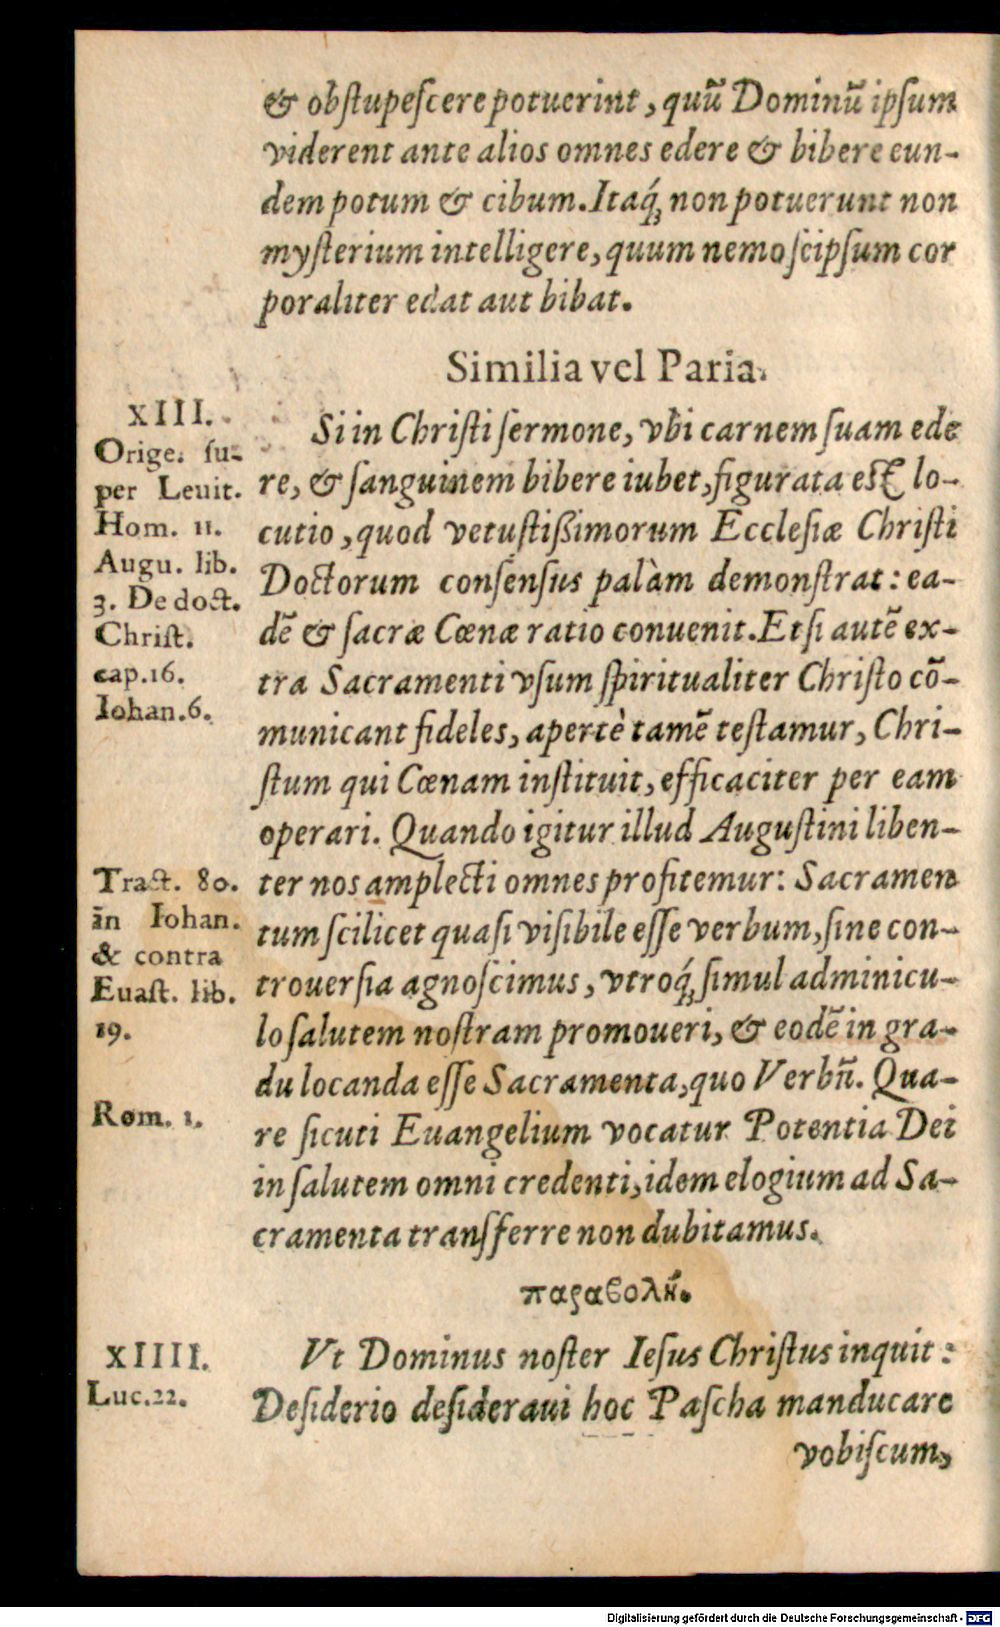 & obſtupeſcere potuerint, quū Dominū ipſum
viderent ante alios omnes edere & bibere eun-
dem potum & cibum. Itaq́; non potuerunt non
myſterium intelligere, quum nemo ſeipſum cor
poraliter edat aut bibat.
Similia vel Paria.
XIII.
Orige. ſu-
per Leuit.
Hom. 11.
Augu. lib.
3. De doct.
Chriſt.
cap.16.
Iohan.6.
Si in Chriſti ſermone, vbi carnem ſuam ede
re, & ſanguinem bibere iubet, figurata eſt lo-
cutio, quod vetuſtißimorum Eccleſiæ Chriſti
Doctorum conſenſus palàm demonſtrat: ea-
dē & ſacræ Cœnæ ratio conuenit. Etſi autē ex-
tra Sacramenti vſum ſpiritualiter Chriſto cō-
municant fideles, apertè tamē teſtamur, Chri-
ſtum qui Cœnam inſtituit, efficaciter per eam
operari. Quando igitur illud Auguſtini liben-
Tract. 80.
in Iohan.
& contra
Euaſt. lib.
19.
ter nos amplecti omnes profitemur: Sacramen
tum ſcilicet quaſi viſibile eſſe verbum, ſine con-
trouerſia agnoſcimus, vtroq́; ſimul adminicu-
lo ſalutem noſtram promoueri, & eodē in gra-
du locanda eſſe Sacramenta, quo Verbū. Qua-
Rom. 1.
re ſicuti Euangelium vocatur Potentia Dei
in ſalutem omni credenti, idem elogium ad Sa-
cramenta transferre non dubitamus.
παραβολή.
XIIII.
Luc.22.
Vt Dominus noſter Ieſus Chriſtus inquit:
Deſiderio deſideraui hoc Paſcha manducare
vobiſcum,
Digitalisierung gefördert durch die Deutsche Forschungsgemeinschaft - DFG